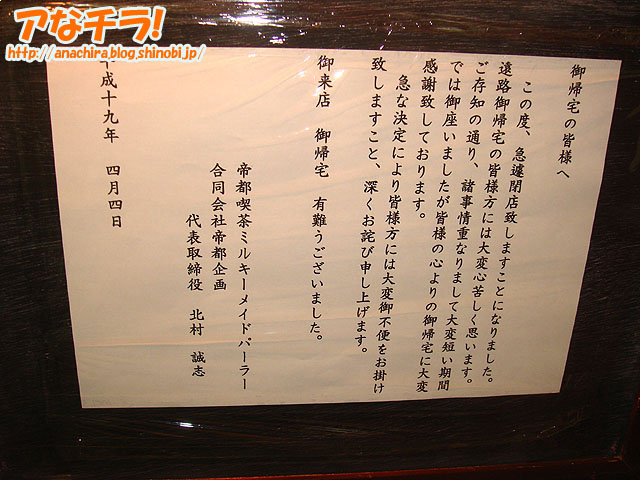 アなチラ!
http://anachira.blog.shinobi.jp/
御帰宅の皆様へ
この度、急遽閉店致しますことになりました。
遠路御帰宅の皆様方には大変心苦しく思います。
ご存知の通り、諸事情重なりまして大変短い期間
では御座いましたが皆様の心よりの御帰宅に大変
感謝致しております。
急な決定により皆様方には大変御不便をお掛け
致しますこと、深くお詫び申し上げます。
御来店　御帰宅　有難うございました。
帝都喫茶ミルキーメイドパーラー
合同会社帝都企画
代表取締役　北村　誠志
平成十九年　四月四日